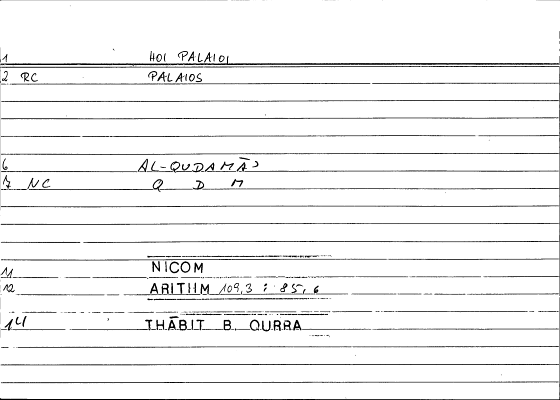 1 HOI PALAIOI
2 RC PALAIOS
6 AL-QUDAMĀʾ
7 NC Q D M
11 NICOM
12 ARITHM 109,3 : 85,6
14 THĀBIT B. QURRA